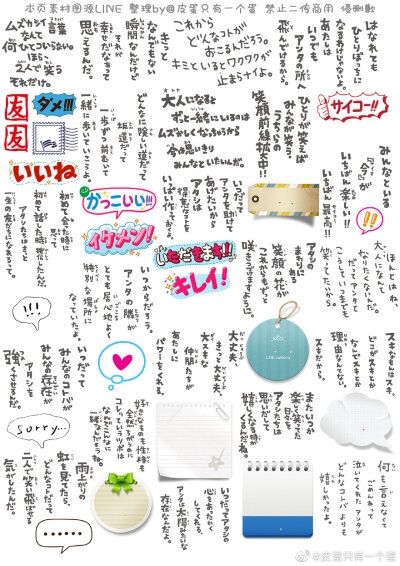 本页素材图源LINE 整理by@皮蛋只有一个蛋 禁止二传商用 侵删歉
はなれても
ひとりぼっちに
なるわけじゃないよ。
いつでも
あいたいときは
飛んでけるから。
アンタの所へ
これから
どんなコトが
おこるんだろう。
キミといるとワクワクが
止まらナイよ。
きっと
なんでもない
瞬間なんだけど
それが
幸せだなあって
思えるんだ。
ムズカシイ言葉
なんて
何ひとついらない。
ほら、
2人で笑う
それだけ。
サイコー!!
ひとりが笑えば
みんなが笑う
うちらの
笑顔前線拡大中!!
大人になると
ずっと一緒にいるのは
ムズかしくなっちゃうから
今の思いきり
みんなといたいんだ。
どんなに険しい道だって
坂道だって
一歩ずつ前むいて
一緒に歩いていこうよ。
友
ダメ!!!
友
いいね
みんなといる
『今』が
いちばん楽しい!!
いちばん最高!!
いつだって
アタシを助けて
あげたいから
アタシは
得意なコトを
いっぱい作っておくよ。
かっこいい!!!
イケメン!
初めて会った時に
思った
初めて話した時に確信したんだ。
アタシたちはきっと
一生の友だちなるって。
いただきます!!
キレイ!
ほんとはね、
大人になんて
なりたくないんだ。
だってアンタと
こうしていつまでも
笑ってたいから。
アタシの
まわりにある
笑顔の花が
これからもずっと
咲きつづけますように。
いつからだろう。
アンタの隣が
とても居心地よく
特別な場所に
なっていたよ。
!!!
スキなもんはスキ。
ピコがスキとか
ないでスキとか
理由なんてない。
スキだから。
LINE camera
大丈夫、
きっと大丈夫。
大スキな
仲間たちが
あたしに
パワーをくれる。
いつだって
みんなのコトバが
みんなの存在が
アタシを
強くさせるんだ。
またいつか
楽しく笑って
日々を
アタシたちは
思い出して
嬉しくなる時が
くるんだよね。
好きなものも性格も
全然ちがうのに
コレっていうツボは
なんでこんなに
一緒なんだろうね。
Sorry...
何も言えなくて
ごめんねって
泣いてくれたアンタが
どんなコトバよりも
嬉しかったよ。
いつだってアタシの
心をあったかく
してくれる
アンタは太陽みたいな
存在なんだよ。
雨上がりの
虹を見てたら、
どんなコトだって
二人で笑い飛ばせる
気がしたんだ。
......
@皮蛋只有一个蛋